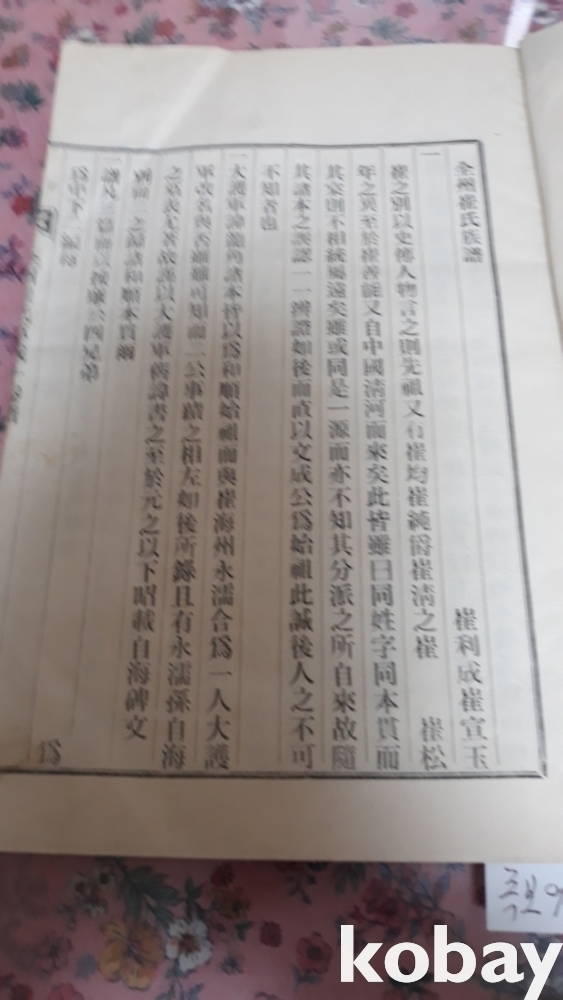 全州崔氏族譜
崔利成崔宣玉
一
崔松
崔之別以史傳人物言之則先祖又有崔均崔純爵崔淸之崔
年之莫至於崔善能又自中國淸河而來矣此皆雖曰同姓字同本貫而
其宗則不相統屬遠矣雖或同是一源而亦不知其分派之所自來故隨
其諸本之誤認一一辨證如後而直以文成公爲始祖此誠後人之不可
不知者也
一大護軍諱龍角諸本皆以爲和順始祖而與崔海州永濡合爲一人大護
軍改名與否雖難可知而二公事蹟之相左如後所錄且有永濡孫自海
之墓表尤著故謹以大護軍舊諱書之至於元之以下昭載自海碑文
別 之歸諸和順本貫
一譜 四兄弟
爲中下二編
족보
kobay